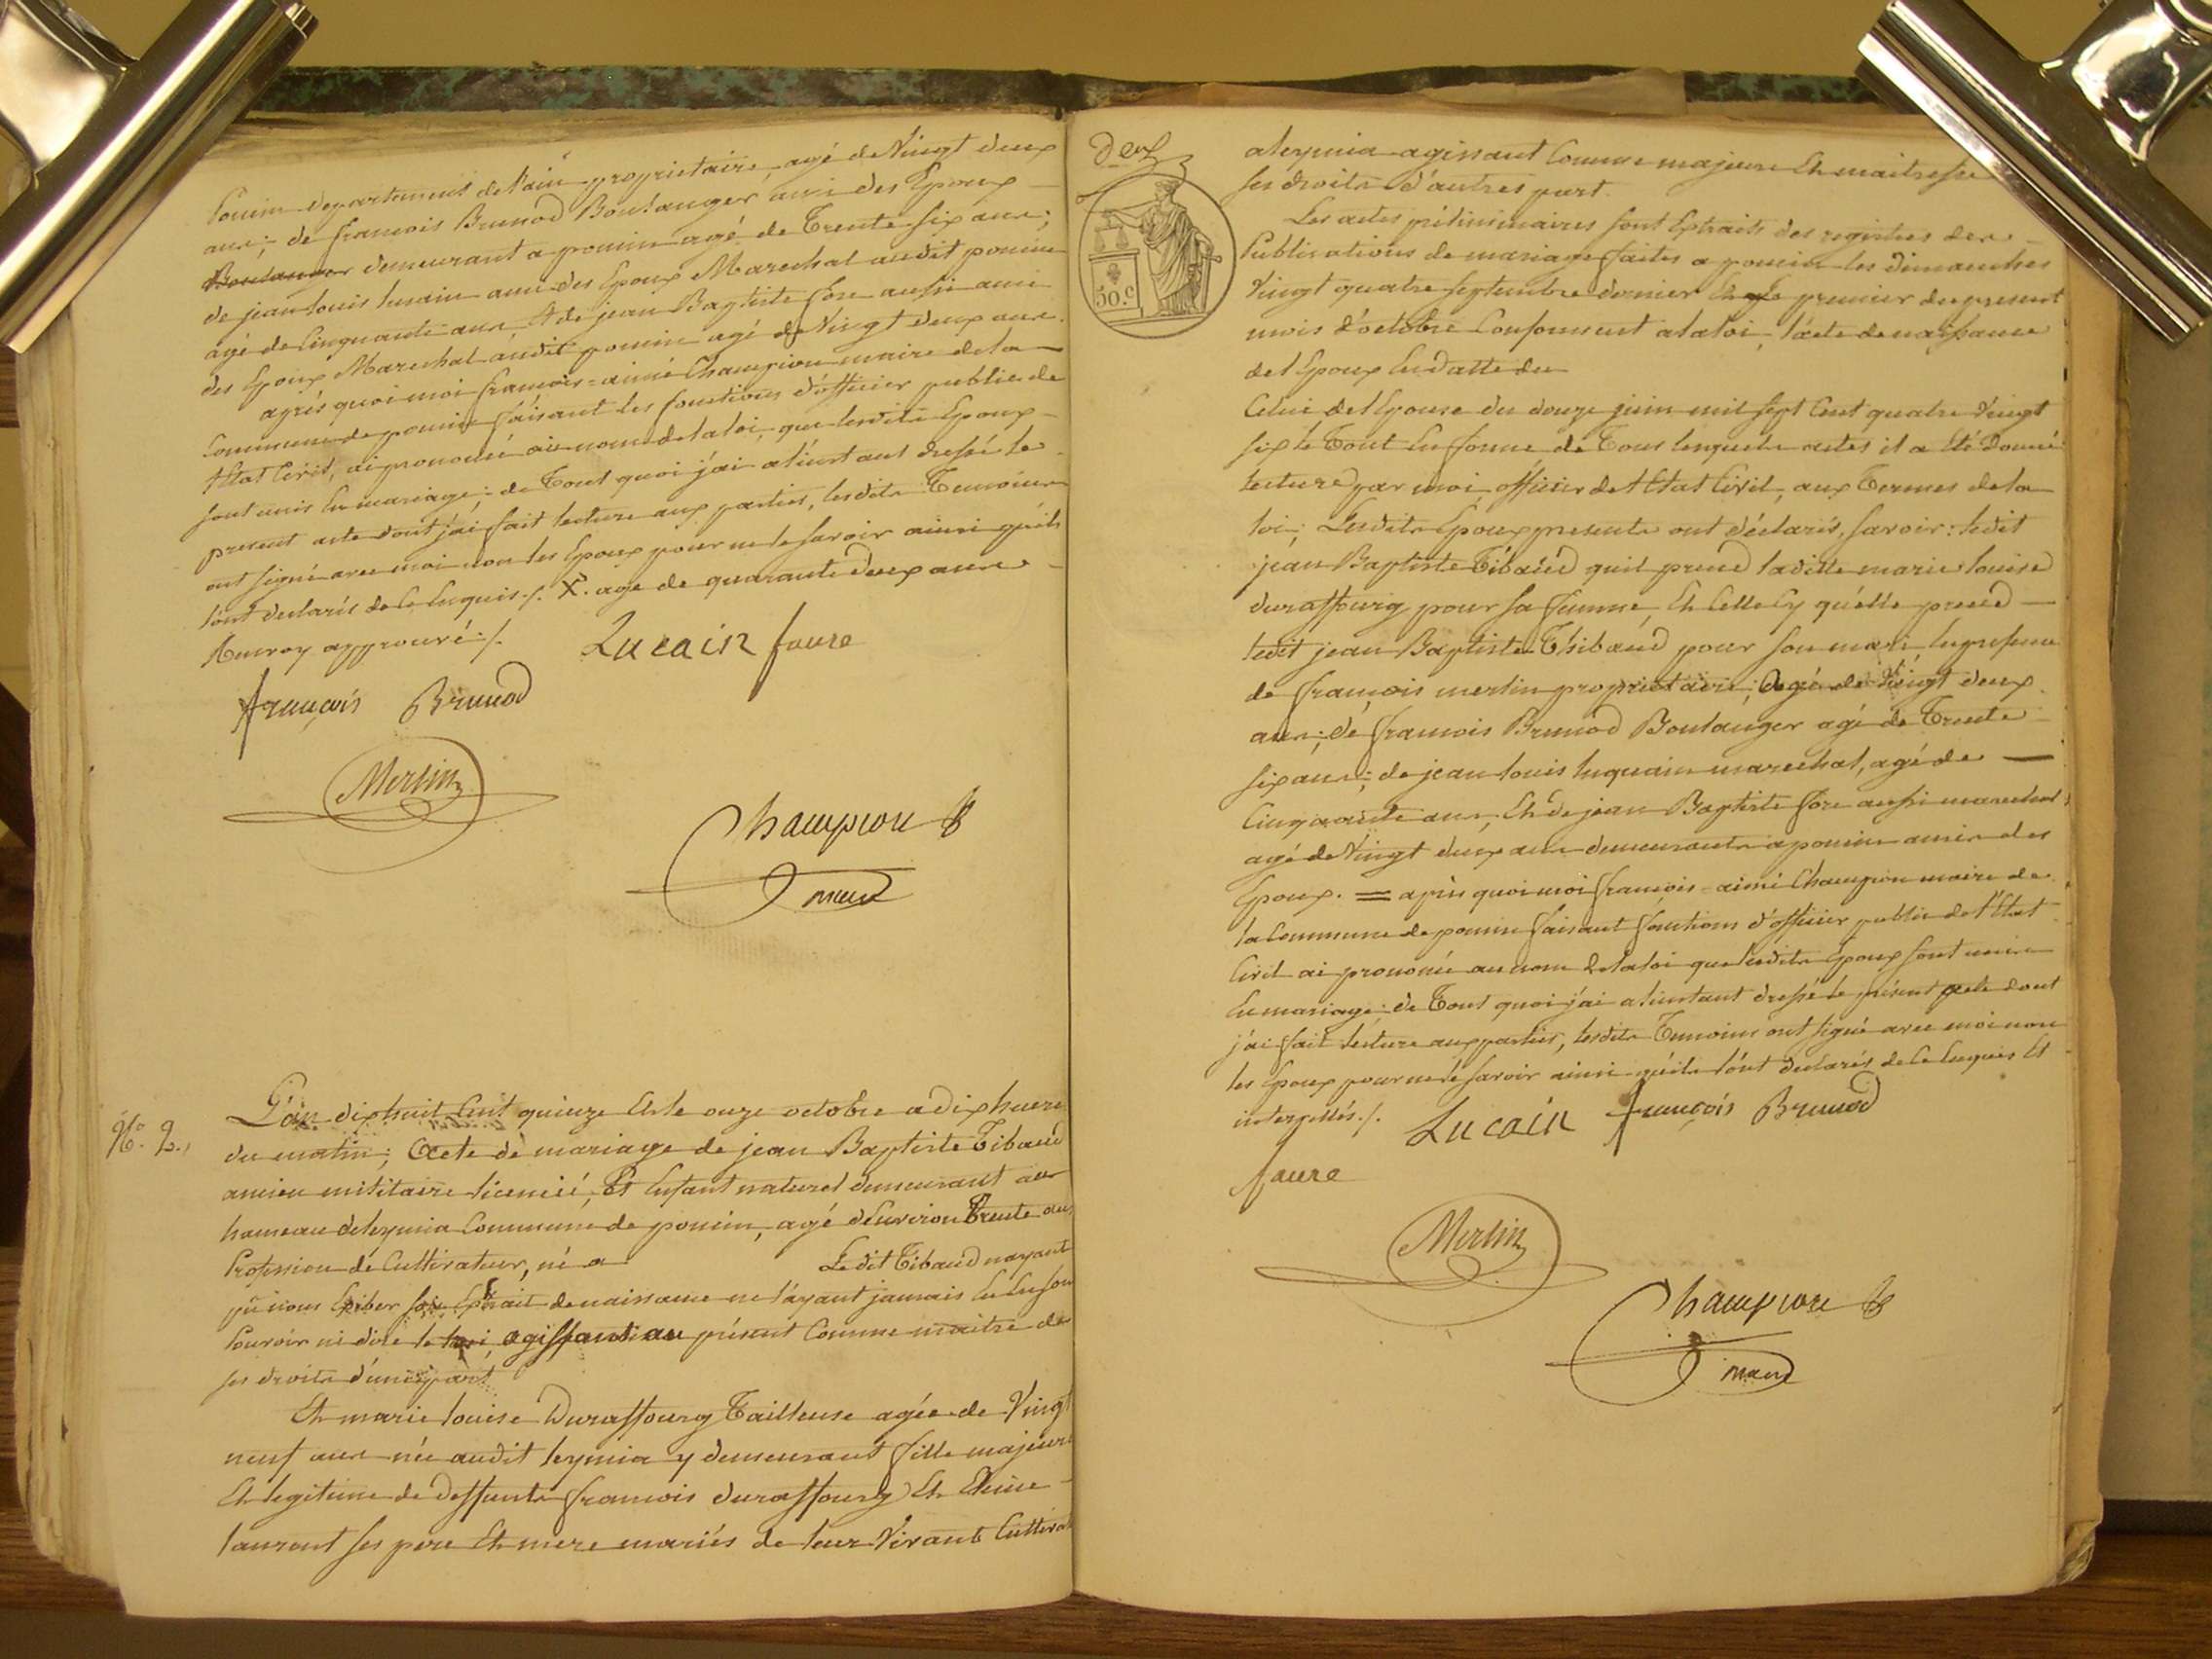 pouin departement de l'ain proprietaire, agé de Vingt deux
ans; de francois Brunod Boulanger ami des Epoux
Boulanger demeurant a pouin agé de Trente six ans;
de jean louis lucain ami des Epoux Marechal audit pouin
agé de Cinquante ans, et de jean Baptiste fore aussi ami
des Epoux Marechal audit pouin agé de Vingt deux ans.
après quoi moi francois=aimé Champion maire de la
Commune de pouin faisant les fonctions d'officier public de
l'Etat Civil, ai prononcé au nom de la loi, que lesdits Epoux
sont unis En mariage; de Tout quoi j'ai a l'instant dressé le
present acte dont j'ai fait lecture aux parties, lesdits Temoins
ont signé avec moi non les Epoux pour ne le savoir ainsi qu'ils
l'ont declarés de Ce Enquis ./. X. age de quarante deux ans
Renvoy approuvé ./.
Lucain faure
françois Brunod
Merlin
Champion
maire
No. 2.,
L'an dix huit Cent quinze Et le onze octobre a dix heures
du matin; Acte de mariage de jean Baptiste Tibaud
ancien militaire licencié, Et Enfant naturel demeurant au
hameau de leymia Commune de pouin, agé d'Environ Trente ans
Profession de Cultivateur, né a Ledit Tibaud n'ayant
pu nous Exiber son Extrait de naissance ne l'ayant jamais Eu En son
pouvoir ni dire le agissant au présent Comme maitre de
ses droits d'une part
Et marie louise Duraffourg Tailleuse agée de Vingt
neuf ans née audit leymia y demeurant fille majeure
Et legitime de Deffunts francois duraffourg Et
laurent ses pere Et mere mariés de leur Vivant Cultivat
deux
50.c
a leymia agissant Comme majeure Et maitresse
ses droits d'autres part.
Les actes préliminaires sont Extraits des registres des
Publications de mariage faites a pouin les dimanches
Vingt quatre septembre dernier Et le premier du present
mois d'octobre Conformement a la loi, l'acte de naissance
de l'Epoux En datte du
Celui de l'Epouse du douze juin mil sept Cent quatre Vingt
six le Tout En forme de Tous lesquels actes il a Eté donné
lecture par moi officier de l'Etat Civil, aux Termes de la
loi; Lesdits Epoux presents ont déclarés, savoir: ledit
jean Baptiste Tibaud qu'il prend laditte marie louise
duraffourg pour sa femme, Et Celle Cy qu'elle prend
ledit jean Baptiste Thibaud pour son mari, En presence
de françois merlin proprietaire; Agé de Vingt deux
ans; de francois Brunod Boulanger agé de Trente
six ans; de jean louis luquain marechal, agé de
Cinquante ans, Et de jean Baptiste fore aussi marechal
agé de Vingt deux ans demeurants a pouin amis des
Epoux. = après quoi moi francois=aimé Champion maire de
la Commune de pouin faisant fonctions d'officier public de l'Etat
Civil ai prononcé au nom de la loi que lesdits Epoux sont unis
En mariage; de Tout quoi j'ai a l'instant dressé le présent acte dont
j'ai fait lecture aux parties, lesdits Temoins ont signé avec moi non
les Epoux pour ne le savoir ainsi qu'ils l'ont declarés de Ce Enquis Et
interpellés ./.
Lucain françois Brunod
faure
Merlin
Champion
maire